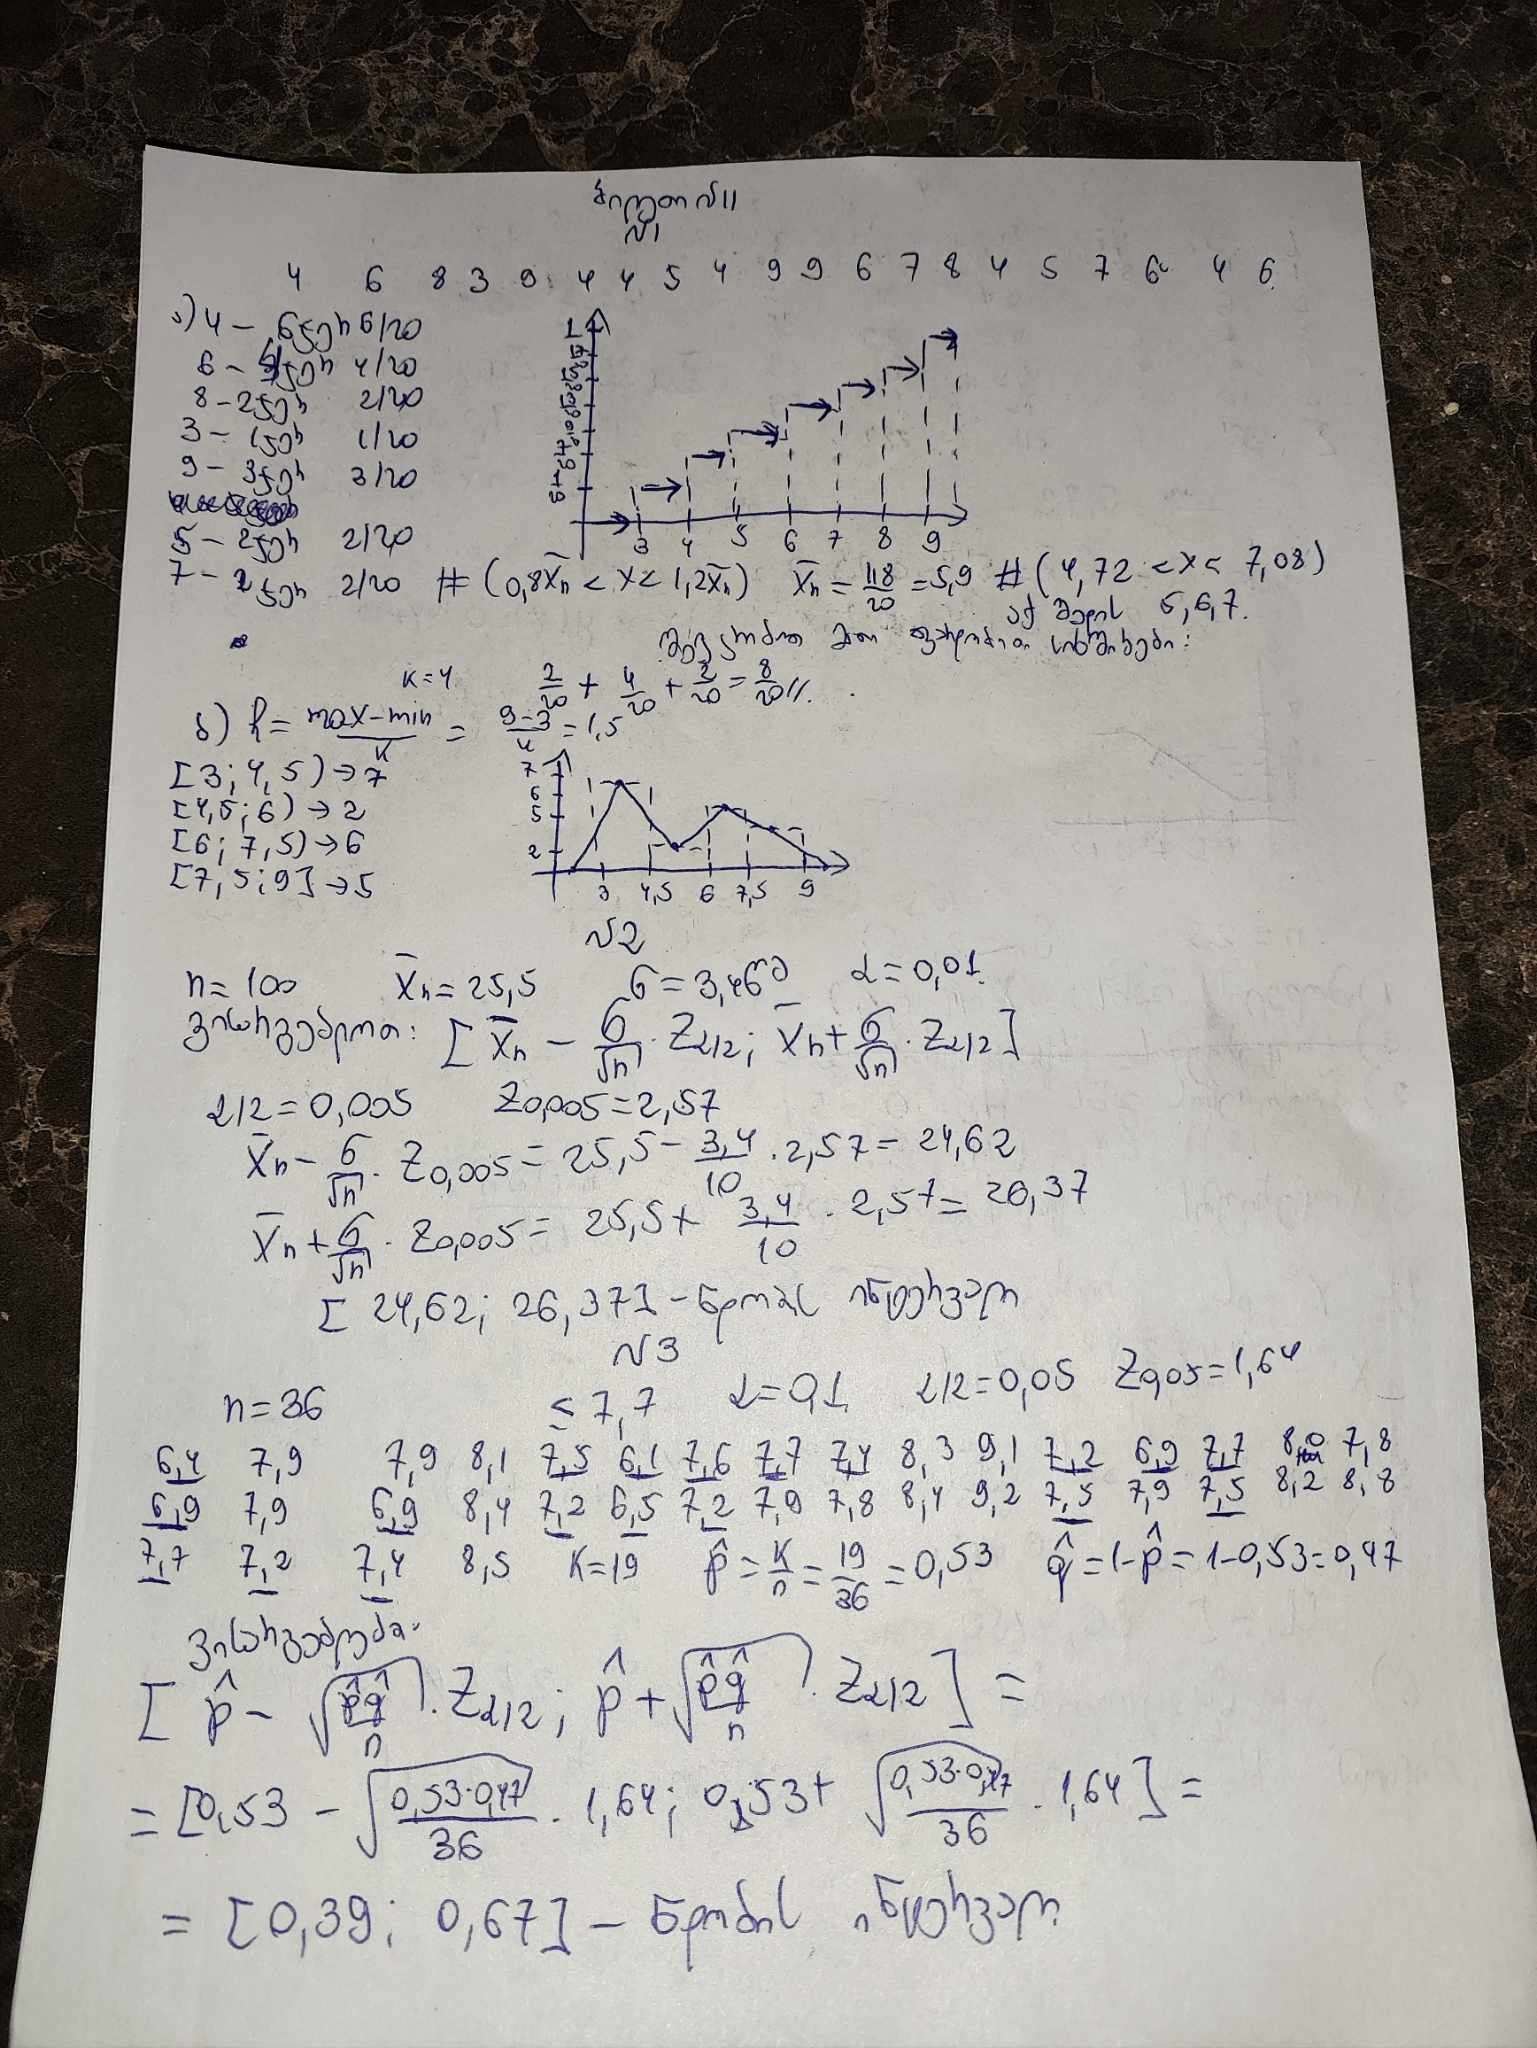 ბილეთი №11
№1
4 6 8 3 9 4 4 5 4 9 9 6 7 8 4 5 7 6 4 6
ა) 4 – 6ჯერ 6/20
6 – 4ჯერ 4/20
8 – 2ჯერ 2/20
3 – 1ჯერ 1/20
9 – 3ჯერ 3/20
5 – 2ჯერ 2/20
7 – 2ჯერ 2/20
1
3 4 5 6 7 8 9
# (0,8X̄n < X < 1,2X̄n) X̄n = 118/20 = 5,9 # (4,72 < X < 7,08)
აქ შედის 5,6,7.
შევკრიბოთ მათი ფარდობითი სიხშირეები:
K=4 2/20 + 4/20 + 2/20 = 8/20//.
ბ) h = max–min/K = 9–3/4 = 1,5
[3; 4,5) → 7
[4,5; 6) → 2
[6; 7,5) → 6
[7,5; 9] → 5
7
6
5
2
3 4,5 6 7,5 9
№2
n = 100 X̄n = 25,5 σ = 3,4 α = 0,01
ვისარგებლოთ: [X̄n – σ/√n · Zα/2; X̄n + σ/√n · Zα/2]
α/2 = 0,005 Z0,005 = 2,57
X̄n – σ/√n · Z0,005 = 25,5 – 3,4/10 · 2,57 = 24,62
X̄n + σ/√n · Z0,005 = 25,5 + 3,4/10 · 2,57 = 26,37
[24,62; 26,37] – ნდობის ინტერვალი
№3
n = 36 ≤ 7,7 α = 0,1 α/2 = 0,05 Z0,05 = 1,64
6,4 7,9 7,9 8,1 7,5 6,1 7,6 7,7 7,4 8,3 9,1 7,2 6,9 7,7 8,0 7,8
6,9 7,9 6,9 8,4 7,2 6,5 7,2 7,9 7,8 8,4 9,2 7,5 7,9 7,5 8,2 8,8
7,7 7,2 7,4 8,5 K=19 p̂ = K/n = 19/36 = 0,53 q̂ = 1–p̂ = 1–0,53 = 0,47
[p̂ – √(p̂q̂/n) · Zα/2; p̂ + √(p̂q̂/n) · Zα/2] =
= [0,53 – √(0,53·0,47/36) · 1,64; 0,53 + √(0,53·0,47/36) · 1,64] =
= [0,39; 0,67] – ნდობის ინტერვალი